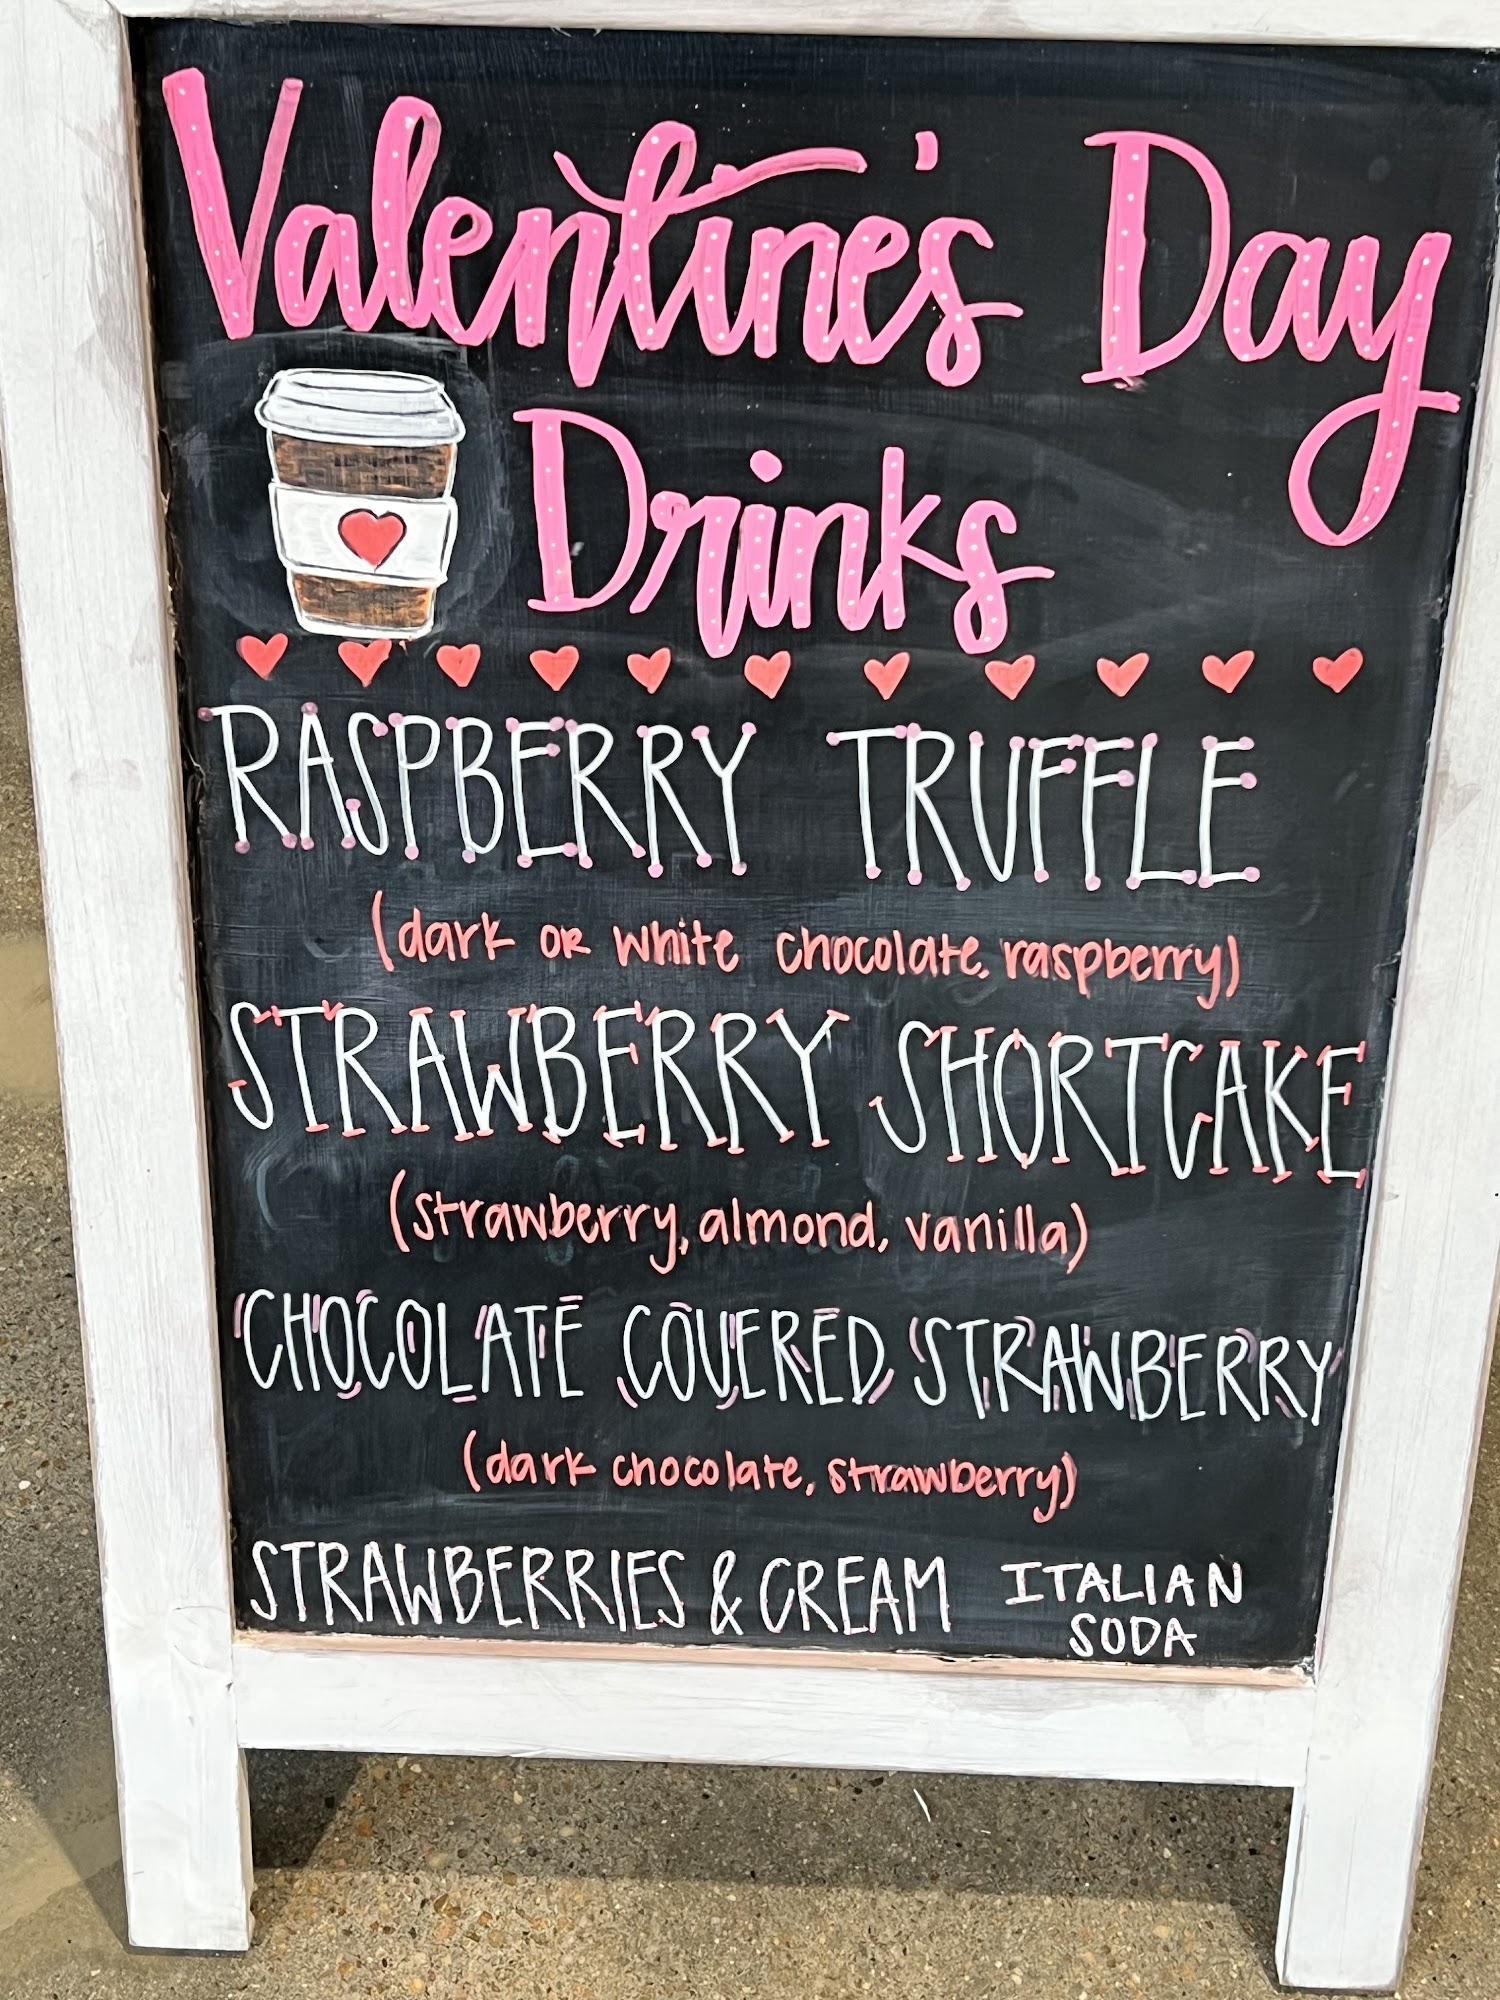 Valentine's Day
Drinks
RASPBERRY TRUFFLE
(dark OR white chocolate, raspberry)
STRAWBERRY SHORTCAKE
(strawberry, almond, vanilla)
CHOCOLATE COVERED STRAWBERRY
(dark chocolate, strawberry)
STRAWBERRIES & CREAM ITALIAN
SODA